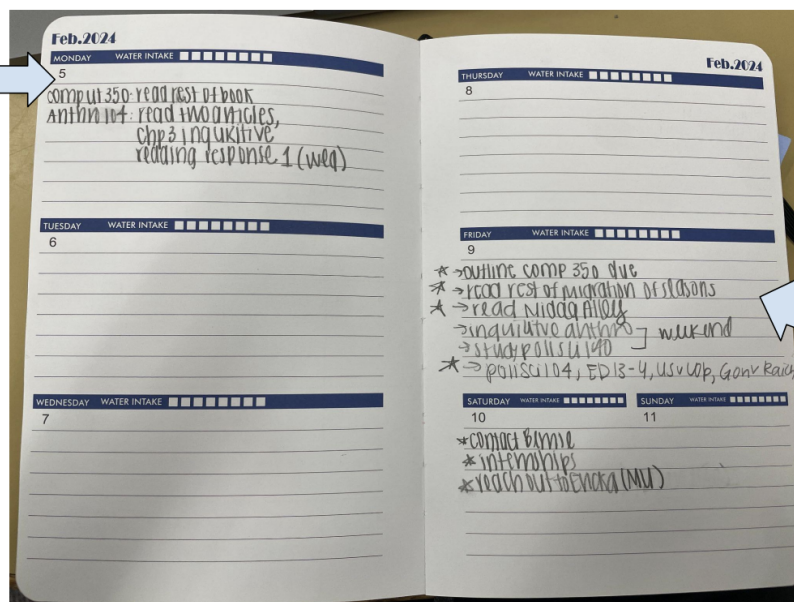 Feb.2024
MONDAY WATER INTAKE
5
comp lit 350: read rest of book
Anthn 104: read two articles,
chp 3 inquizitive
reading response 1 (wed)
TUESDAY WATER INTAKE
6
WEDNESDAY WATER INTAKE
7
Feb.2024
THURSDAY WATER INTAKE
8
FRIDAY WATER INTAKE
9
→outline comp 350 due
→read rest of migration of seasons
→read Middaq Alley
→inquiitive anthro
→study polisci 140
weekend
→polisci 104, ED 13-4, US v Lop, Gonv Raich
SATURDAY WATER INTAKE
10
*contact Bernie
*internships
*reach out to (MU)
SUNDAY WATER INTAKE
11